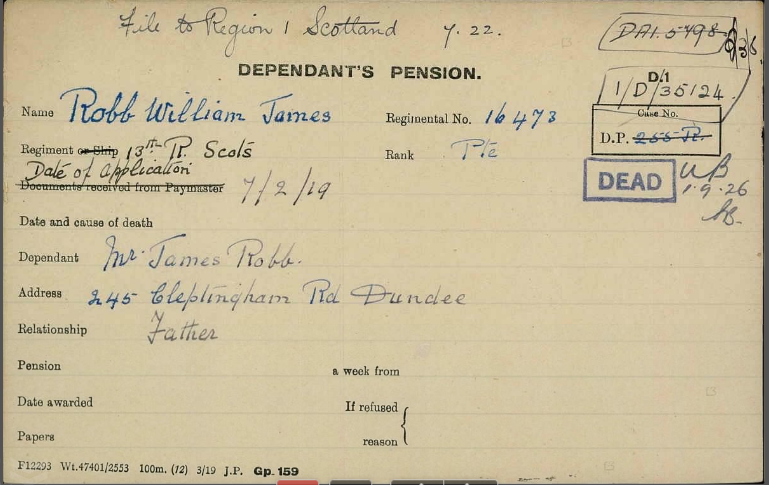 File to Region 1 Scotland 7.22.
DA1.5498
DEPENDANT'S PENSION.
D.1
1/D/35124.
Name Robb William James Regimental No. 16473
Case No.
D.P. 255 R.
Regiment or Ship 13th R. Scots Rank Pte
Date of Application
Documents received from Paymaster 7/2/19
DEAD
1.9.26
Date and cause of death
Dependant Mr. James Robb.
Address 245 Cleptingham Rd Dundee
Relationship Father
Pension a week from
Date awarded If refused
Papers reason
F12293 Wt.47401/2553 100m. (12) 3/19 J.P. Gp.159